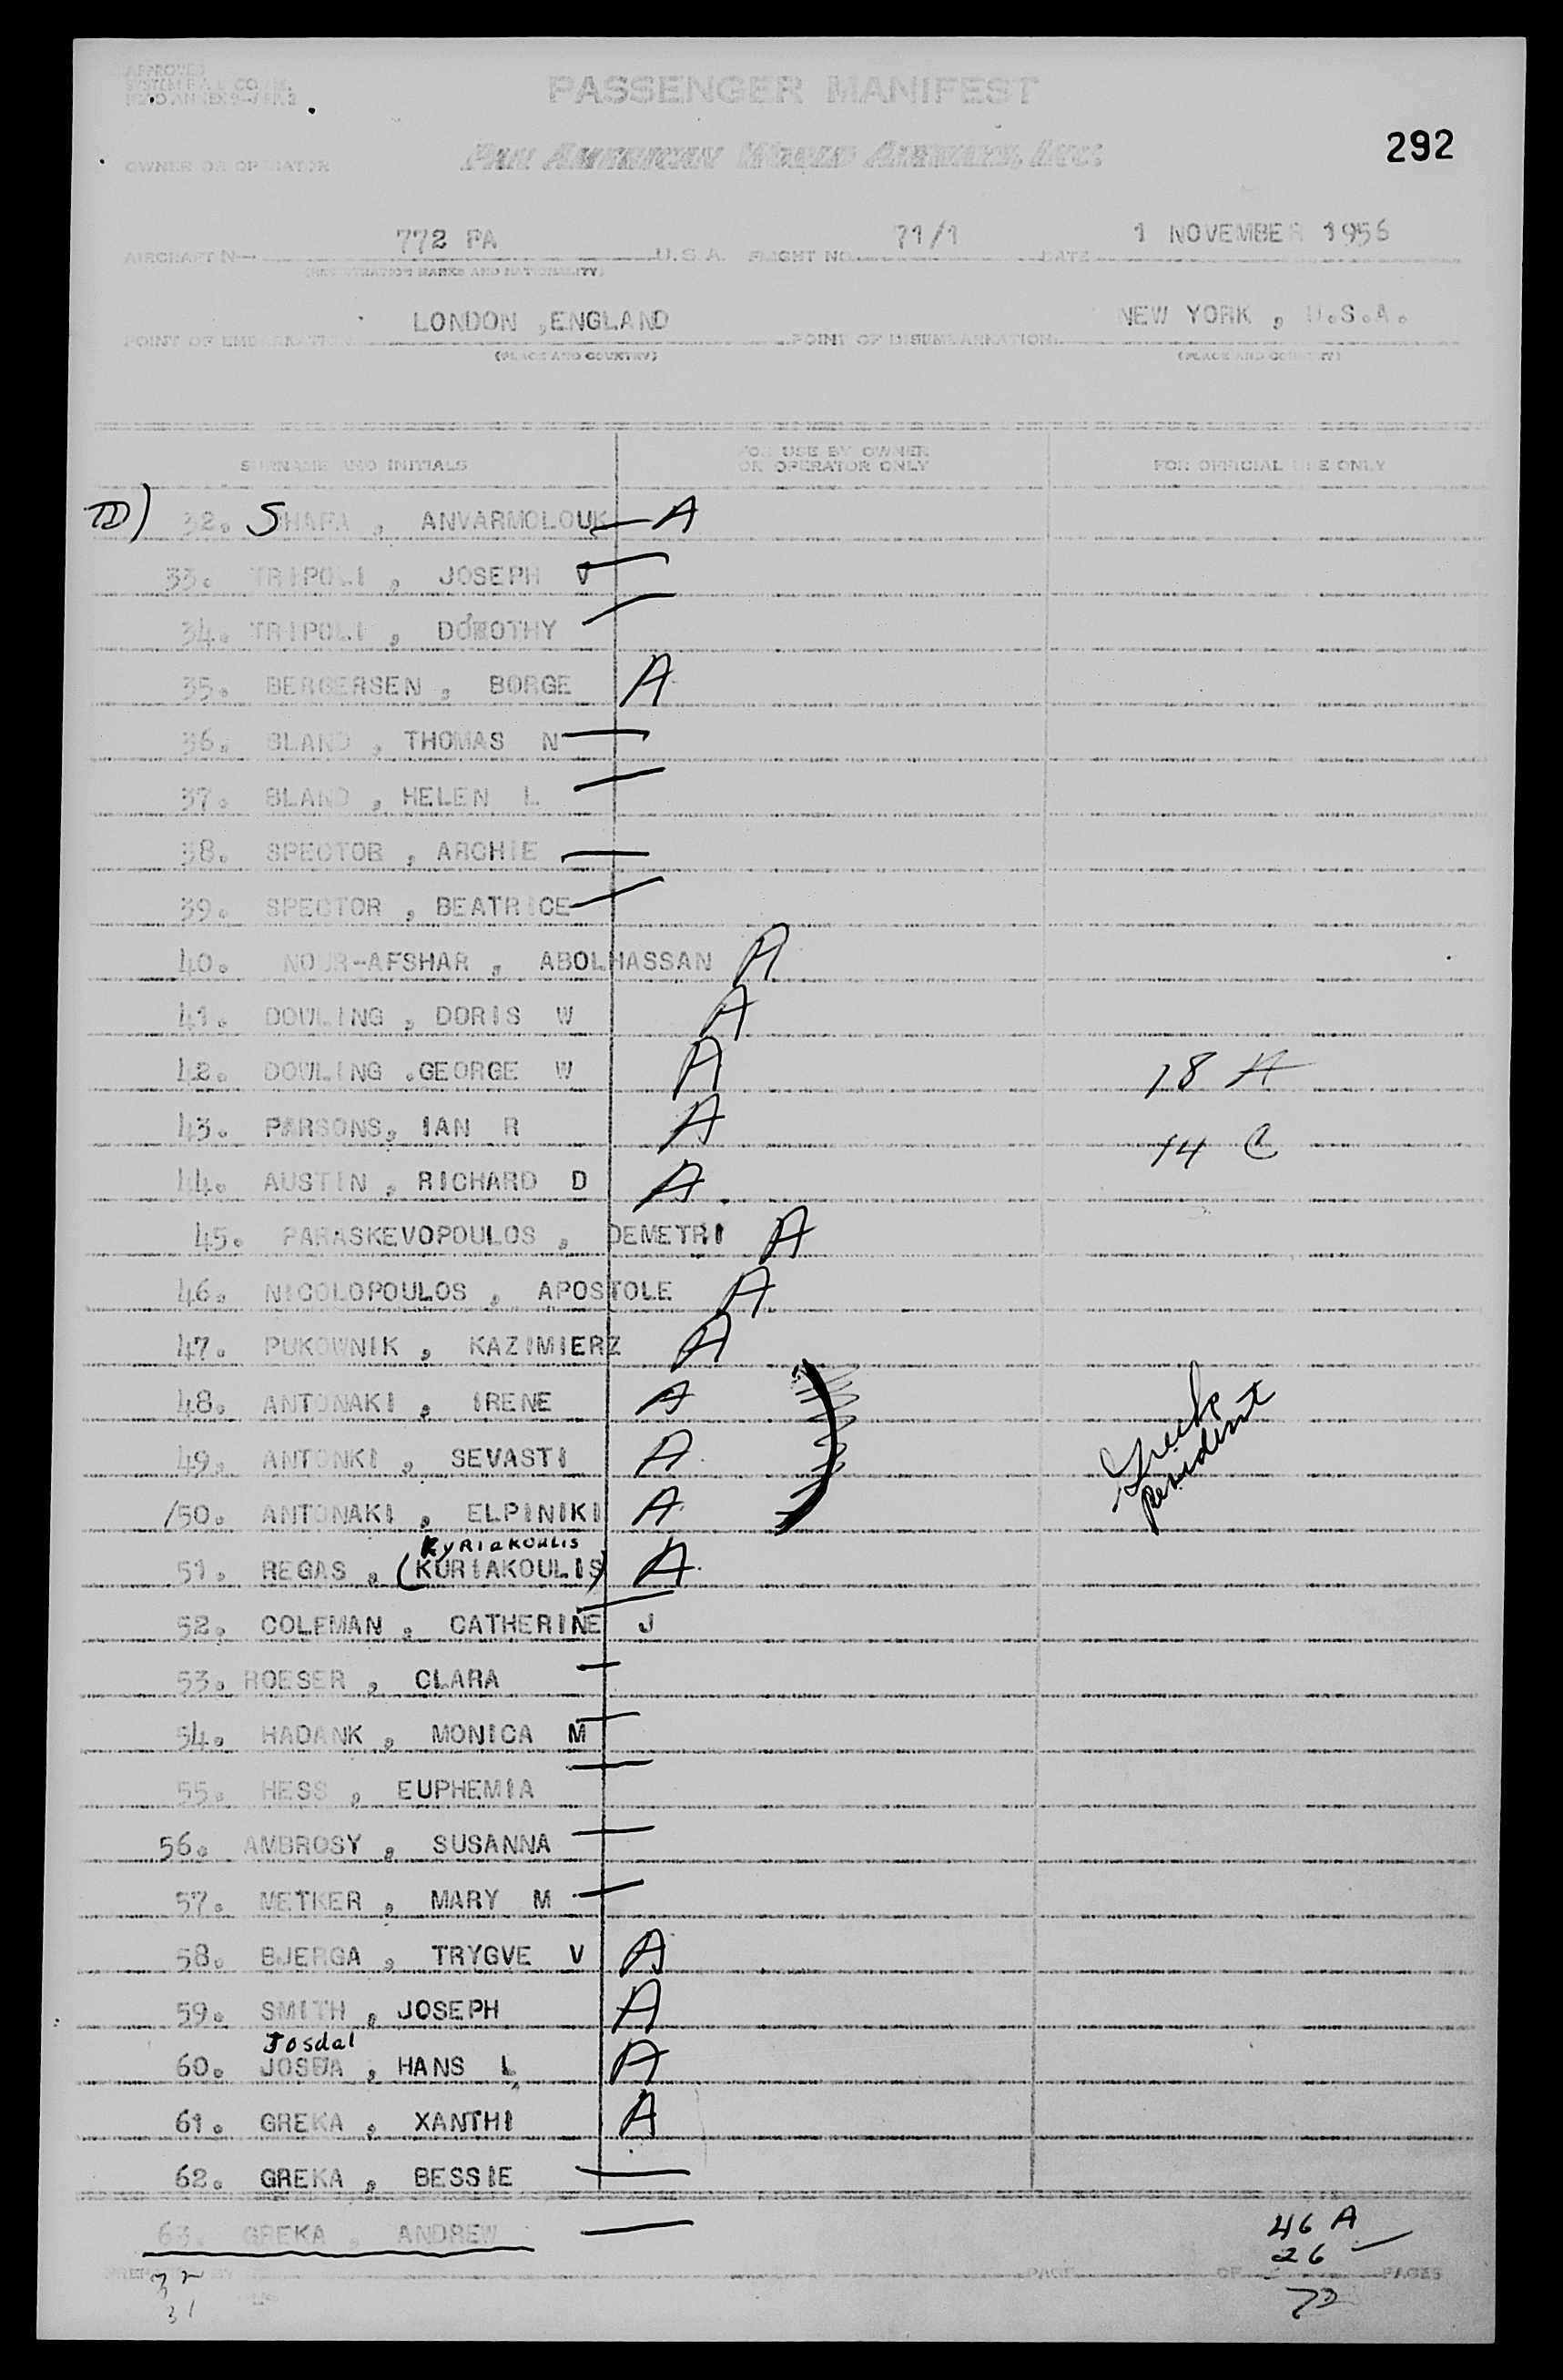 APPROVED
PASSENGER MANIFEST
292
OWNER OR OPERATOR PAN AMERICAN WORLD AIRWAYS, INC.
AIRCRAFT N— 772 PA U.S.A. FLIGHT NO. 71/1 DATE 1 NOVEMBER 1956
(REGISTRATION MARKS AND NATIONALITY)
POINT OF EMBARKATION LONDON ,ENGLAND POINT OF DISEMBARKATION NEW YORK , U.S.A.
(PLACE AND COUNTRY) (PLACE AND COUNTRY)
SURNAME AND INITIALS FOR USE BY OWNER OR OPERATOR ONLY FOR OFFICIAL USE ONLY
32. SHAFA , ANVARMOLOUK — A
33. TRIPOLI , JOSEPH V —
34. TRIPOLI , DOROTHY —
35. BERGERSEN , BORGE A
36. BLAND , THOMAS N —
37. BLAND , HELEN L —
38. SPECTOR , ARCHIE —
39. SPECTOR , BEATRICE —
40. NOUR-AFSHAR , ABOLHASSAN A
41. DOWLING , DORIS W A
42. DOWLING .GEORGE W A 18 A
43. PARSONS, IAN R A 14 C
44. AUSTIN , RICHARD D A
45. PARASKEVOPOULOS , DEMETRI A
46. NICOLOPOULOS , APOSTOLE A
47. PUKOWNIK , KAZIMIERZ A
48. ANTONAKI , IRENE A
49. ANTONKI , SEVASTI A
Greek
resident
/50. ANTONAKI , ELPINIKI A
KYRIAKOULIS
51. REGAS , (KURIAKOULIS) A
52. COLEMAN , CATHERINE J —
53. ROESER , CLARA —
54. HADANK , MONICA M —
55. HESS , EUPHEMIA —
56. AMBROSY , SUSANNA —
57. METKER , MARY M —
58. BJERGA , TRYGVE V A
59. SMITH , JOSEPH A
Josdal
60. JOSDA , HANS L A
61. GREKA , XANTHI A
62. GREKA , BESSIE —
63. GREKA , ANDREW —
46 A
26 —
PAGE OF PAGES
32
31
72